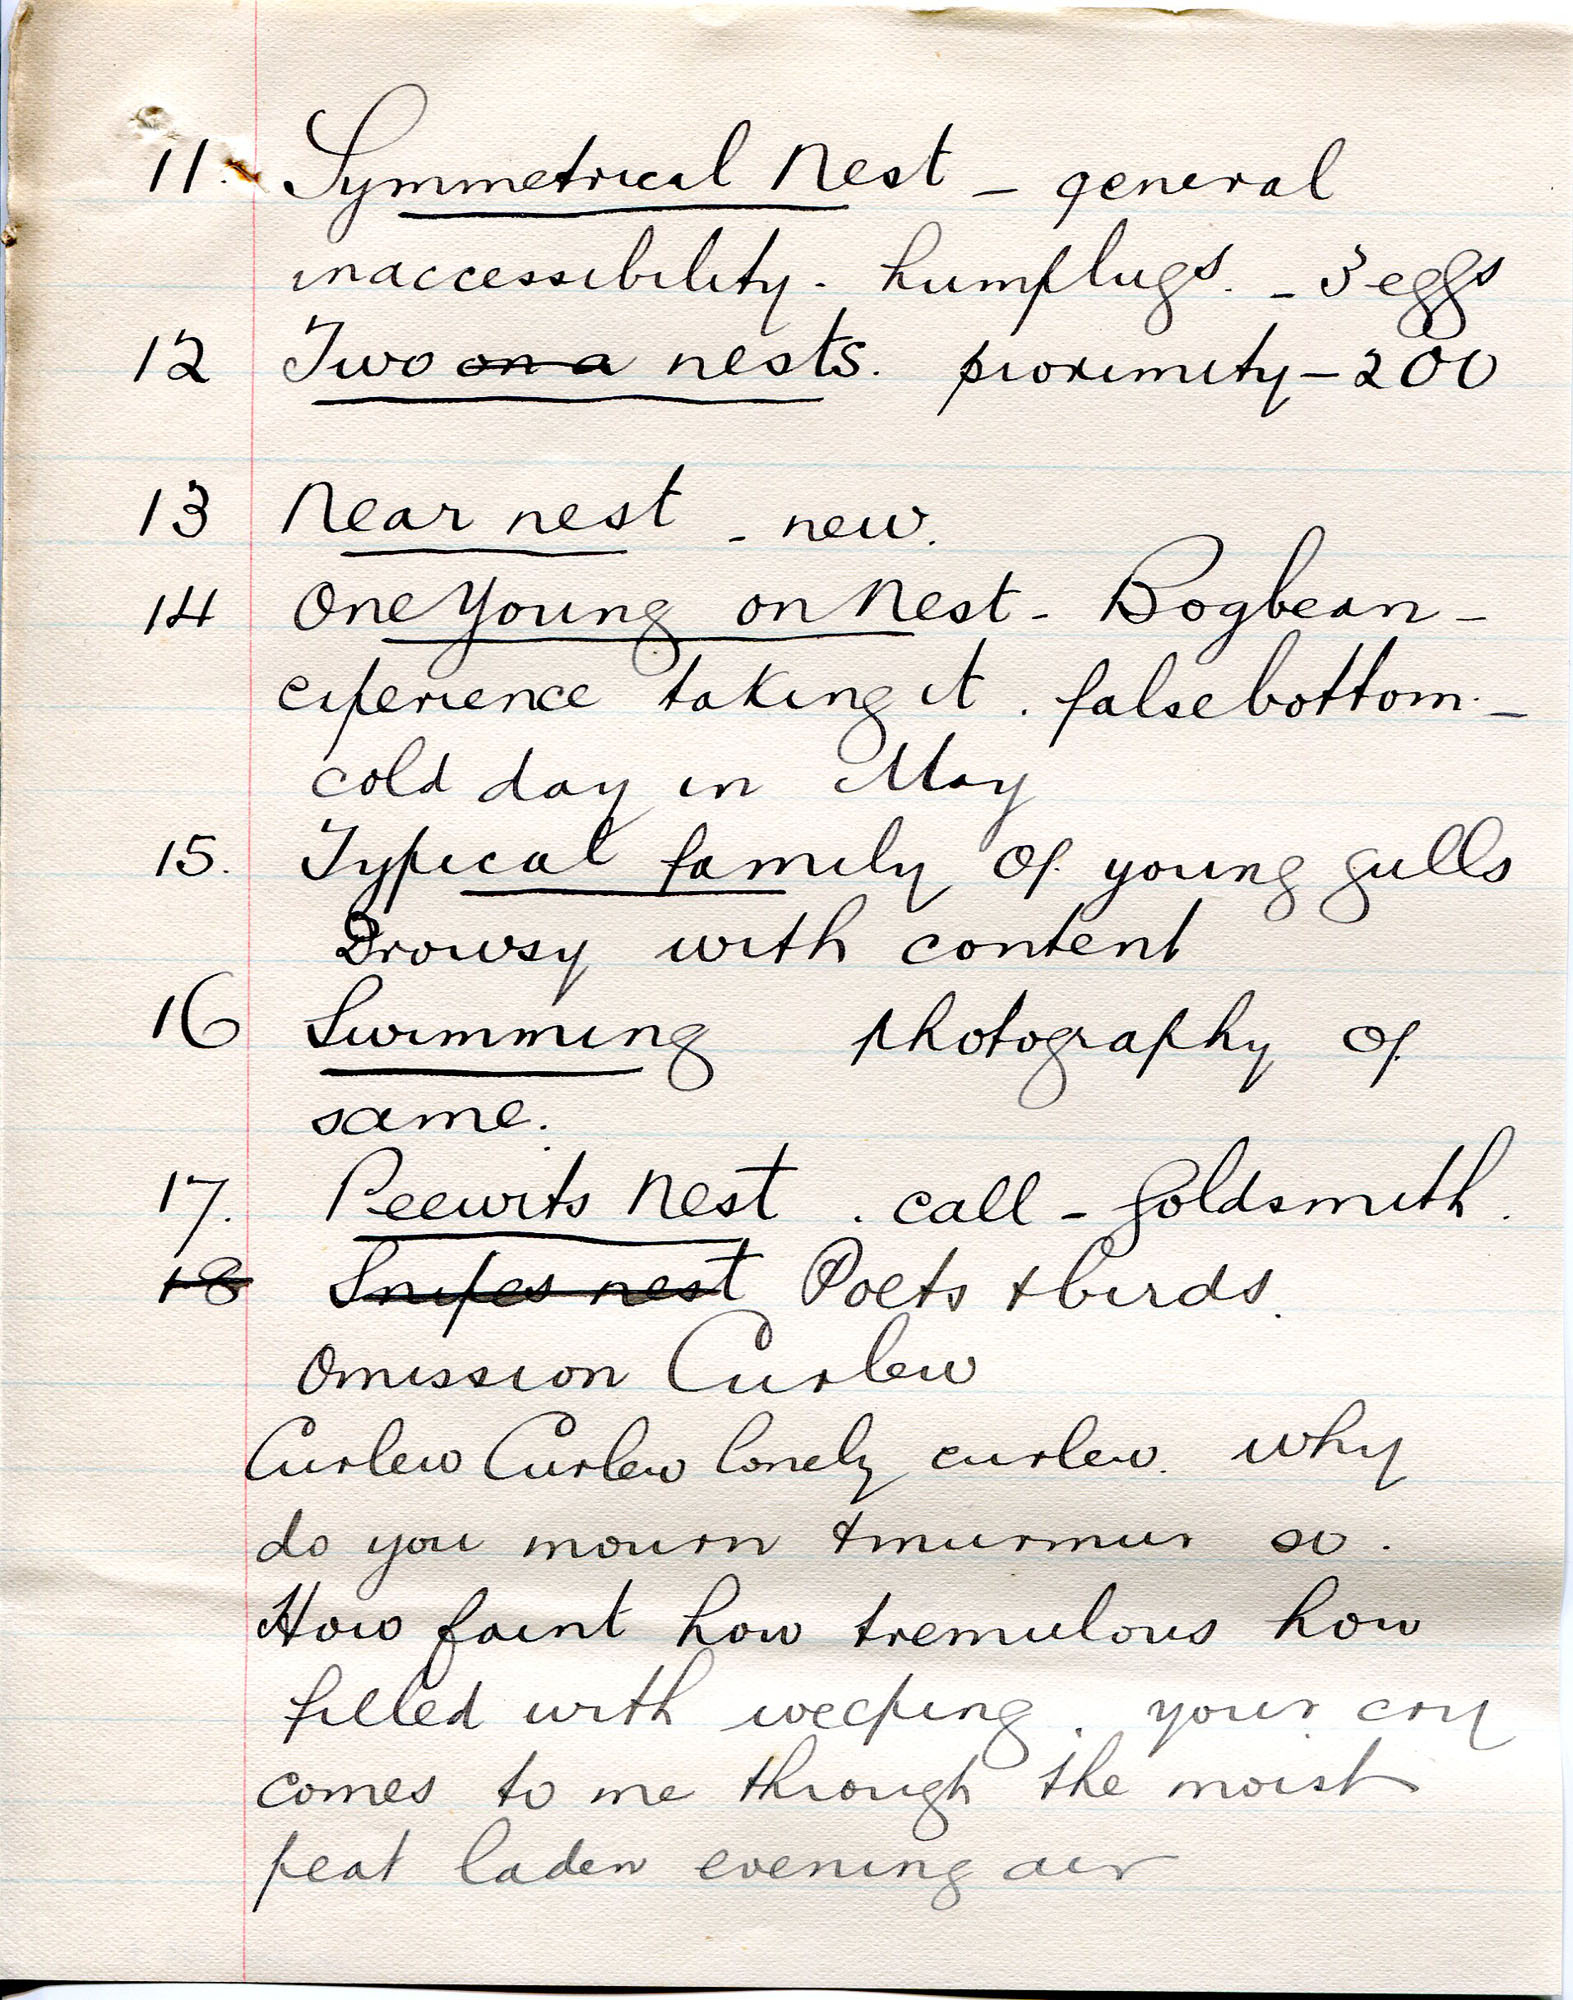 11. Symmetrical Nest - general
inaccessibility. humplugs. - 3 eggs
12 Two on a nests. proximity - 200
13 Near nest - new.
14 One Young on Nest - Bogbean -
experience taking it. false bottom. -
cold day in May
15. Typical family of young gulls
Drowsy with content
16 Swimming photography of
same.
17. Peewits Nest. call - Goldsmith.
18 Snipes nest Poets & birds.
Omission Curlew
Curlew Curlew lonely curlew. why
do you mourn & murmur so.
How faint how tremulous how
filled with weeping. your cry
comes to me through the moist
peat laden evening air